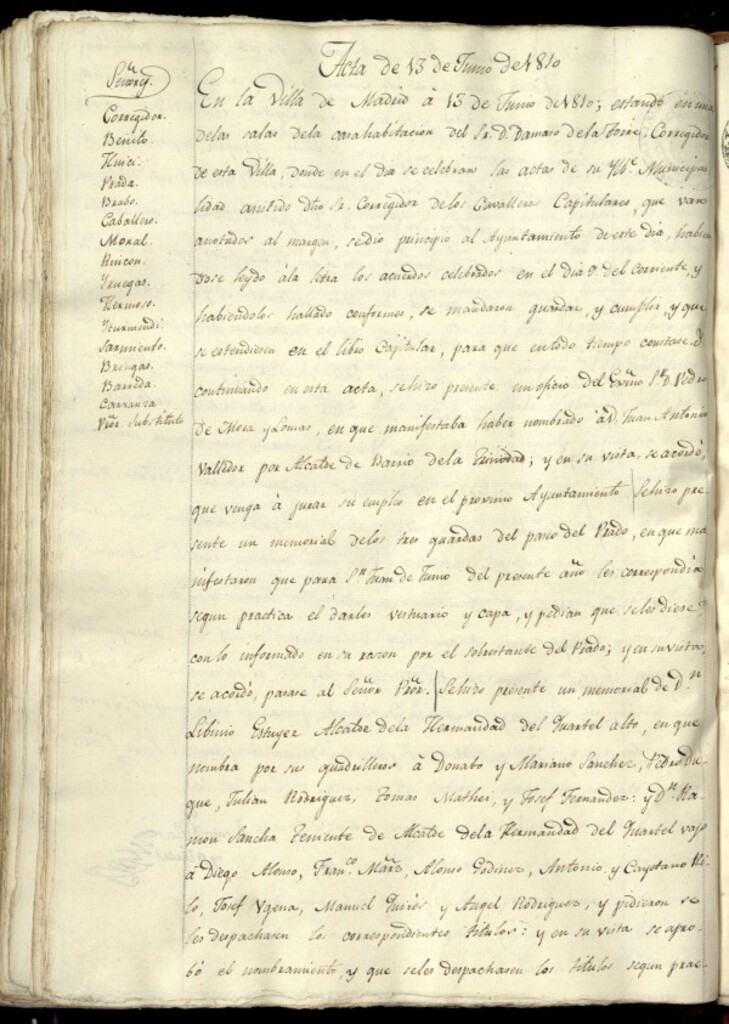 Acta de 13 de Junio de 1810
Señores
Corregidor.
Benito.
Huici.
Prada.
Brabo.
Caballero.
Moral.
Rincon.
Yruegas.
Hermoso.
Yturmendi.
Sarmiento.
Bringas.
Barreda.
Carranza
Pror. Substituto
En la Villa de Madrid à 13 de Junio de 1810; estando en una
delas salas dela casa habitacion del Sr. D. Damaso dela Torre, Corregidor
de esta Villa, donde en el dia se celebran las actas de su Municipa
lidad asistido dho Sr. Corregidor delos Cavalleros Capitulares, que van
anotados al margen, se dio principio al Ayuntamiento de este dia, habien
dose leydo àla letra los acuerdos celebrados en el dia 9 del corriente, y
habiendolos hallado conformes, se mandaron guardar, y cumplir, y que
se estendiesen en el libro Capitular, para que en todo tiempo constase. Y
continuando en esta acta, se hizo presente un oficio del Exmo Sr. D. Pedro
de Mora y Lomas, en que manifestaba haber nombrado à D. Juan Antonio
Vallador por Alcalde de Barrio dela Trinidad; y en su vista, se acordò,
que venga à jurar su empleo en el proximo Ayuntamiento | Se hizo pre-
sente un memorial delos tres guardas del paseo del Prado, en que ma
nifestaron que para Sn. Juan de Junio del presente año les correspondia
segun practica el darles vestuario y capa, y pedian que seles diese:
con lo informado en su razon por el sobrestante del Prado; y en su vista,
se acordò, pasase al Señor Pror. | Se hizo presente un memorial de Dn.
Libinio Estuyer Alcalde dela Hermandad del Quartel alto, en que
nombra por sus quadrilleros à Donato y Mariano Sanchez, Pedro Du-
que, Julian Rodriguez, Tomas Mathei, y Josef Fernandez: y Dn. Ra-
mon Sancha Teniente de Alcalde dela Hermandad del Quartel vajo
à Diego Alonso, Franco. Mâñz, Alonso Godinez, Antonio y Cayetano
Josef Ygena, Manuel Quirós y Angel Rodriguez, y pidieron se
les despachasen los correspondientes titulos: y en su vista se apro-
bó el nombramiento, y que seles despachasen los titulos segun prac-